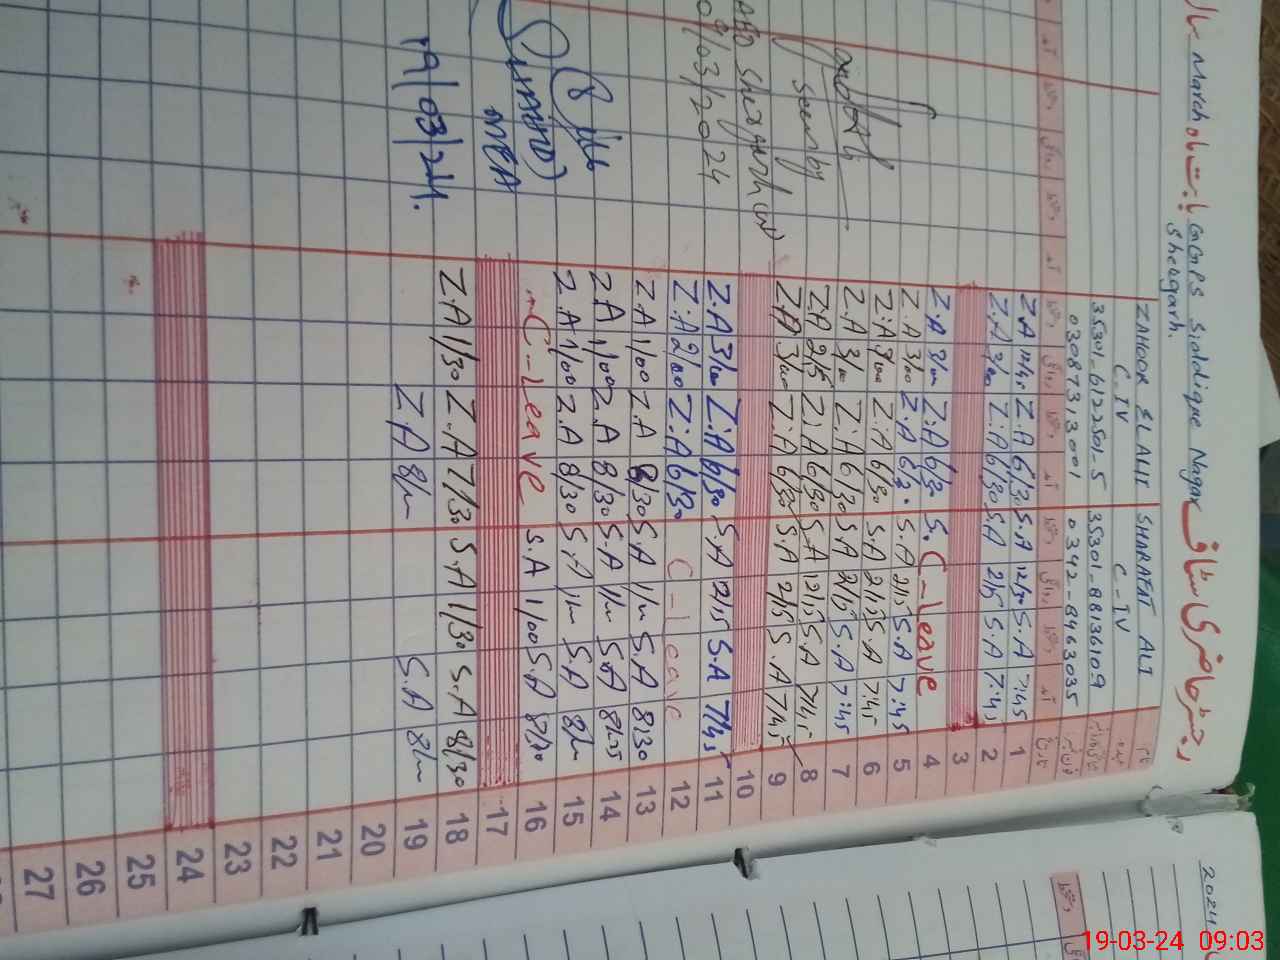 رجسٹر حاضری سٹاف GGPS Siddique Nagar بابت ماہ March
Shergarh.
نام
ZAHOOR ELAHI
SHARAFAT ALI
عہدہ
C_IV
C_IV
35301_6122501_5
35301_8813610_9
03087313001
0342-8463035
تاریخ
آمد
دستخط
روانگی
دستخط
1 7:45 S.A 12/30 S.A 6/30 Z.A 12/45 Z.A
2 7:45 S.A 2/15 S.A 6/30 Z:A 3/00 Z.A
3
4 C_leave S. 6/30 Z:A 3/00 Z.A
5 7:45 S.A 2/15 S.A 6/30 Z:A 3/00 Z.A
6 7:45 S.A 2/15 S.A 6/30 Z:A 3/00 Z:A
7 7:45 S.A 2/15 S.A 6/30 Z.A 3/00 Z.A
8 7/45 S.A 12/15 S.A 6/30 Z:A 2/15 Z.A
9 7/45 S.A 2/15 S.A 6/30 Z:A 3/00 Z.A
10
11 7/45 S.A 12/15 S.A 6/30 Z:A 3/00 Z.A
12 C_leave 6/30 Z:A 2/00 Z:A
13 8/30 S.A 1/00 S.A 8/30 Z.A 1/00 Z.A
14 8/25 S.A 1/00 S.A 8/30 Z.A 1/00 Z.A
15 8/00 S.A 1/00 S.A 8/30 Z.A 1/00 Z.A
16 8/30 S.A 1/00 S.A C-Leave
17
18 8/30 S.A 1/30 S.A 7/30 Z.A 1/30 Z.A
19 8/00 S.A 8/00 Z.A
20
21
22
23
24
25
26
27
Seen by
Shergarh (W)
/03/2024
MEA
19/03/24.
2024
19-03-24 09:03